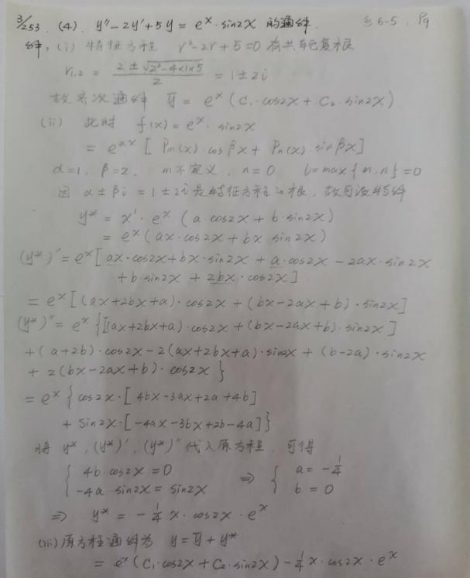 3/253. (4). y''-2y'+5y = eˣ·sin2x 的通解. §6-5, P9
解: (i) 特征方程 r²-2r+5=0 有共轭复根
r₁.₂ = (2±√(2²-4×1×5))/2 = 1±2i
故齐次通解 ȳ = eˣ(C₁·cos2x + C₂·sin2x)
(ii) 此时 f(x) = eˣ·sin2x
= e^{αx}[Pm(x) cosβx + Pn(x) sinβx]
α=1, β=2, m不定义, n=0 b=max{m,n}=0
因 α±βi = 1±2i 是特征方程的根, 故
y* = x'·eˣ(a cos2x + b·sin2x)
= eˣ(ax·cos2x + bx sin2x)
(y*)' = eˣ[ax·cos2x + bx·sin2x + a·cos2x - 2ax·sin2x
+ b·sin2x + 2bx·cos2x]
= eˣ[(ax+2bx+a)·cos2x + (bx-2ax+b)·sin2x]
(y*)'' = eˣ{[(ax+2bx+a)·cos2x + (bx-2ax+b)·sin2x]
+(a+2b)·cos2x - 2(ax+2bx+a)·sin2x + (b-2a)·sin2x
+2(bx-2ax+b)·cos2x}
= eˣ{cos2x·[4bx-3ax+2a+4b]
+ sin2x·[-4ax-3bx+2b-4a]}
将 y*, (y*)', (y*)'' 代入原方程, 可得
{ 4b cos2x = 0 ⇒ { a = -1/4
-4a·sin2x = sin2x b = 0
⇒ y* = -1/4 x·cos2x·eˣ
(iii) 原方程通解为 y = ȳ + y*
= eˣ(C₁·cos2x + C₂·sin2x) - 1/4 x·cos2x·eˣ